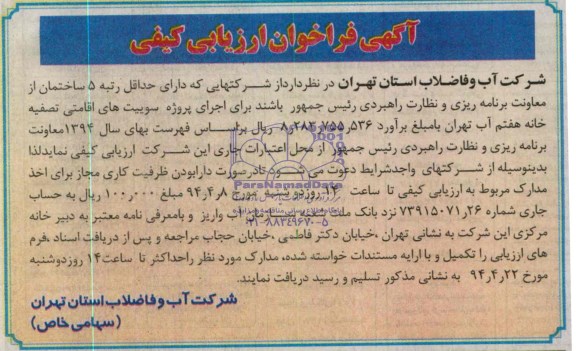 آگهی فراخوان ارزیابی کیفی
شرکت آب وفاضلاب استان تهران در نظردارداز شرکتهایی که دارای حداقل رتبه ۵ ساختمان از
معاونت برنامه ریزی و نظارت راهبردی رئیس جمهور باشند برای اجرای پروژه سوییت های اقامتی تصفیه
خانه هفتم آب تهران بامبلغ برآورد ۸٫۲۸۳٫۷۵۵٫۵۳۶ ریال براساس فهرست بهای سال ۱۳۹۴معاونت
برنامه ریزی و نظارت راهبردی رئیس جمهور از محل اعتبارات جاری این شرکت ارزیابی کیفی نمایدلذا
بدینوسیله از شرکتهای واجدشرایط دعوت می شود تادرصورت دارابودن ظرفیت کاری مجاز برای اخذ
مدارک مربوط به ارزیابی کیفی تا ساعت مورخ ۹۴٫۴٫۸ مبلغ ۱۰۰٫۰۰۰ ریال به حساب
جاری شماره ۷۳۹۱۵۰۷۱٫۲۶ نزد بانک واریز و بامعرفی نامه معتبر به دبیر خانه
مرکزی این شرکت به نشانی تهران ،خیابان دکتر فاطمی ،خیابان حجاب مراجعه و پس از دریافت اسناد ،فرم
های ارزیابی را تکمیل و با ارایه مستندات خواسته شده، مدارک مورد نظر راحداکثر تا ساعت۱۴ روزدوشنبه
مورخ ۹۴٫۴٫۲۲ به نشانی مذکور تسلیم و رسید دریافت نمایند.
شرکت آب وفاضلاب استان تهران
(سهامی خاص)
ParsNamadData
۰۲۱-۸۸۳۴۹۶۷۰-۵